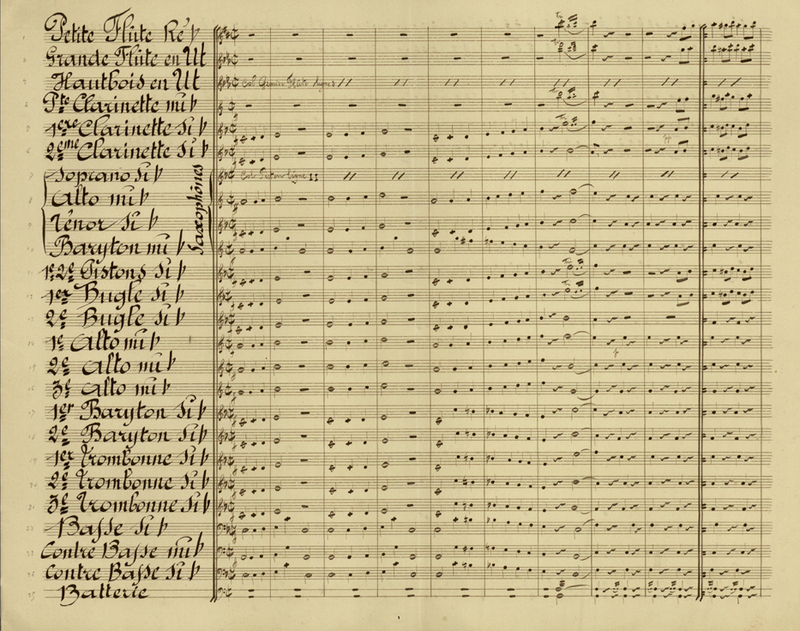 Petite Flûte Ré ♭
Grande Flûte en Ut
Hautbois en Ut
Pte Clarinette mi ♭
1ere Clarinette Si ♭
2eme Clarinette Si ♭
Soprano Si ♭
Alto mi ♭
Ténor Si ♭
Baryton mi ♭
Saxophones
1r 2e Pistons Si ♭
1er Bugle Si ♭
2e Bugle Si ♭
1e Alto mi ♭
2e Alto mi ♭
3e Alto mi ♭
1er Baryton Si ♭
2e Baryton Si ♭
1er Trombonne Si ♭
2e Trombonne Si ♭
3e Trombonne Si ♭
Basse Si ♭
Contre Basse mi ♭
Contre Basse Si ♭
Batterie